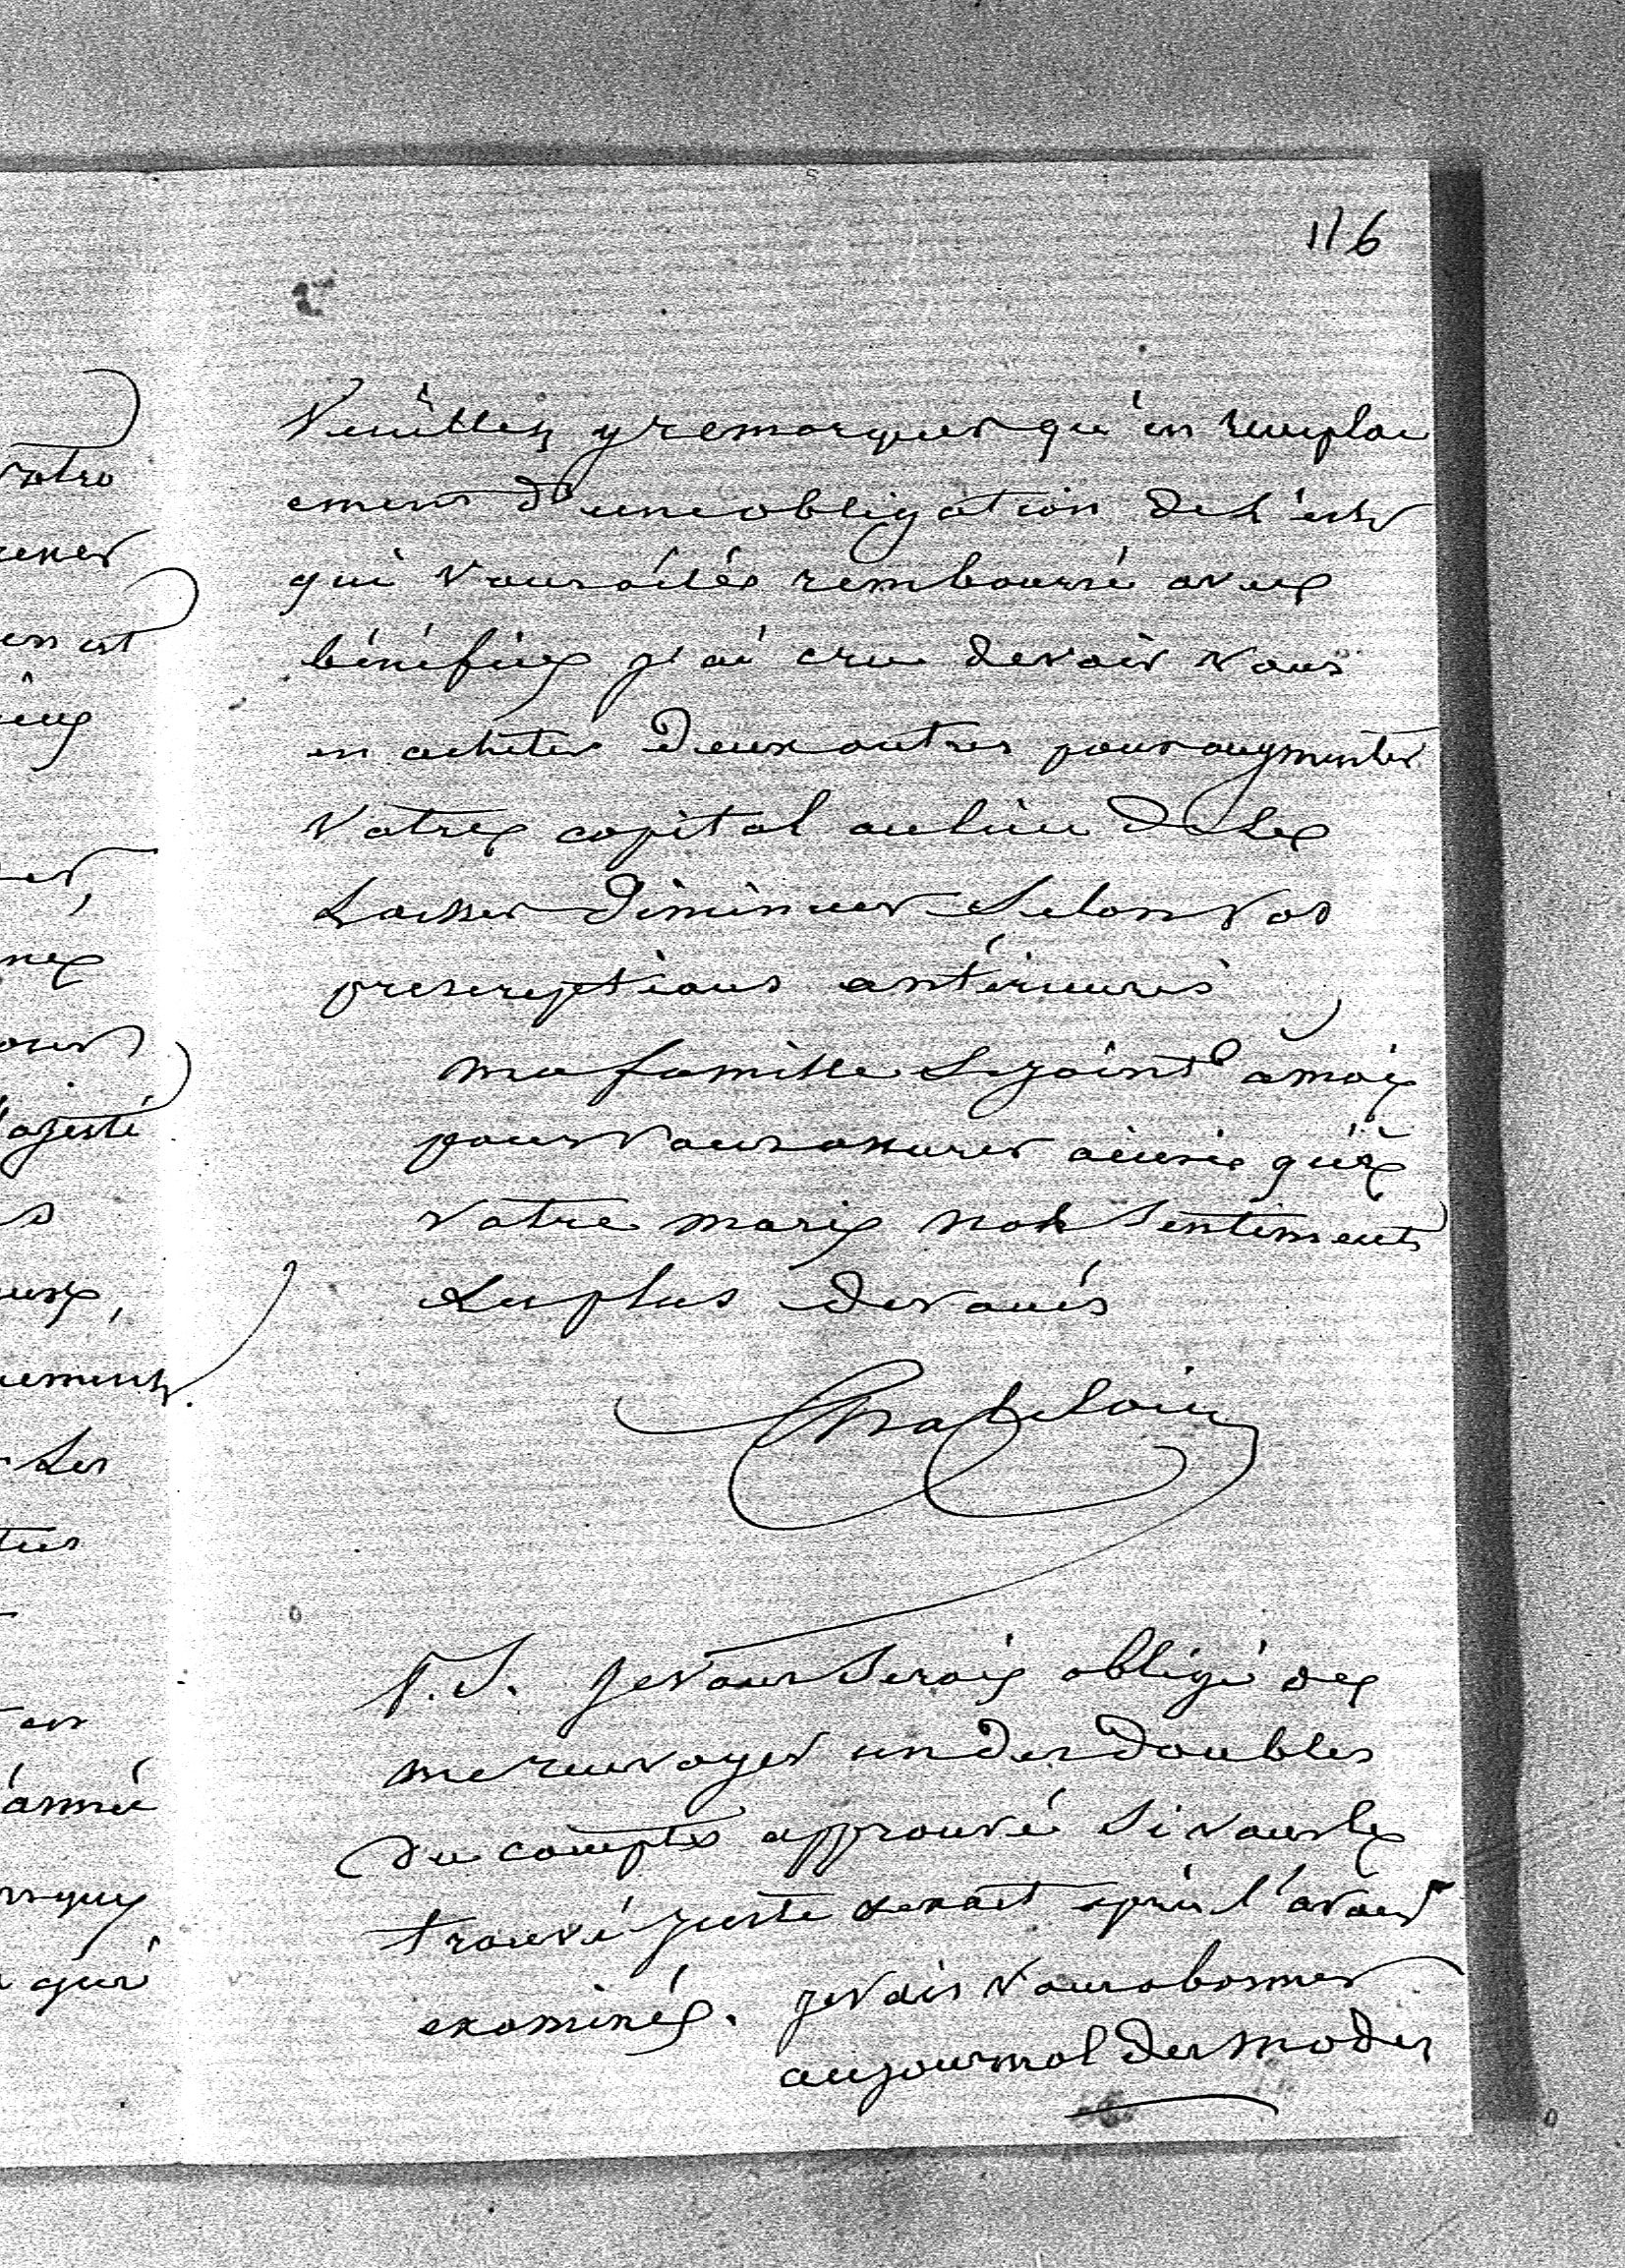 116
Veuillez y remarquer qu'en remplac
ement d'une obligation de l'est
qui vous a étés remboursé avec
bénéfice j'ai cru devoir vous
en acheter deux autres pour augmenter
votre capital au lieu de le
laisser diminuer selon vos
prescriptions antérieures
ma famille se joint à moi
pour vous assurer ainsi que
votre mari nos sentiments
les plus dévoués
Chatelain
P.S. Je vous serais obligé de
me renvoyer un des doubles
du comptes approuvé si vous le
trouvé juste exact après l'avoir
examiné. je vais vous abonner
au journal des modes
votre
en est
ajesté
Les
année
qui